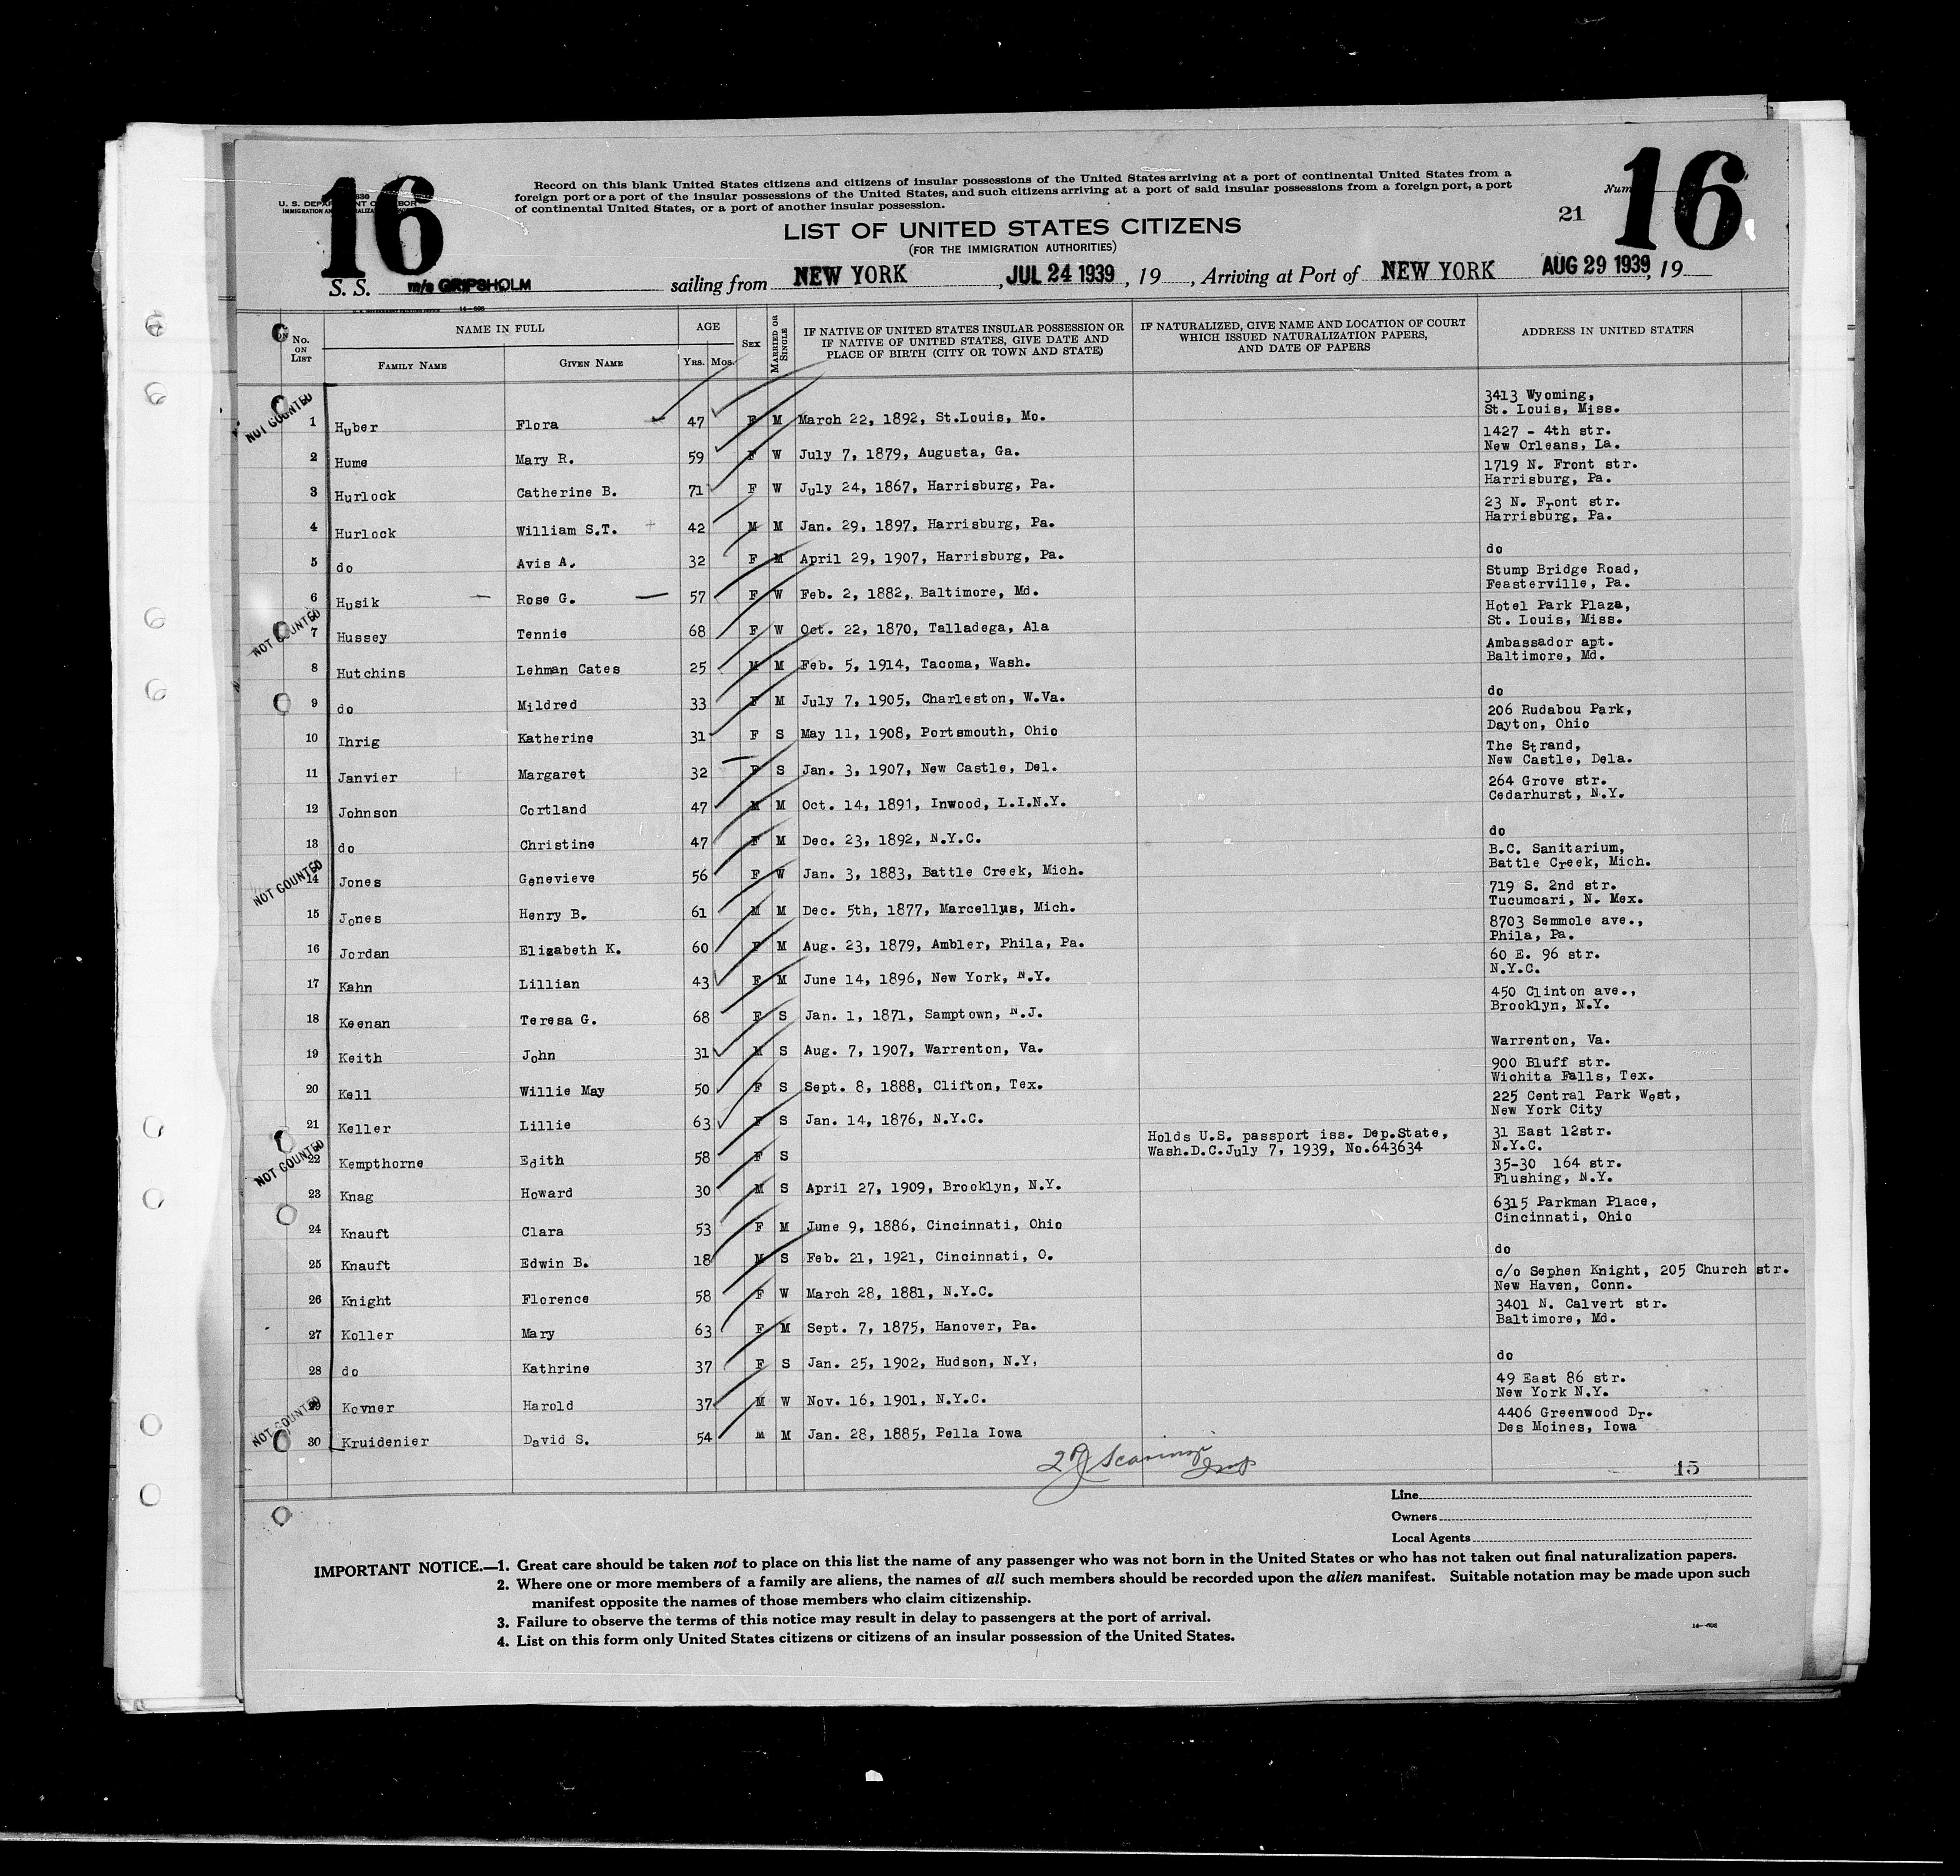 16
U. S. DEPARTMENT OF LABOR
Record on this blank United States citizens and citizens of insular possessions of the United States arriving at a port of continental United States from a
foreign port or a port of the insular possessions of the United States, and such citizens arriving at a port of said insular possessions from a foreign port, a port
of continental United States, or a port of another insular possession.
21
16
LIST OF UNITED STATES CITIZENS
(FOR THE IMMIGRATION AUTHORITIES)
S. S. m/s GRIPSHOLM sailing from NEW YORK, JUL 24 1939, 19 , Arriving at Port of NEW YORK AUG 29 1939, 19
No. ON LIST NAME IN FULL AGE SEX MARRIED OR SINGLE IF NATIVE OF UNITED STATES INSULAR POSSESSION OR IF NATIVE OF UNITED STATES, GIVE DATE AND PLACE OF BIRTH (CITY OR TOWN AND STATE) IF NATURALIZED, GIVE NAME AND LOCATION OF COURT WHICH ISSUED NATURALIZATION PAPERS, AND DATE OF PAPERS ADDRESS IN UNITED STATES
FAMILY NAME GIVEN NAME YRS. MOS.
NOT COUNTED
1 Huber Flora 47 F M March 22, 1892, St.Louis, Mo. 3413 Wyoming, St. Louis, Miss.
2 Hume Mary R. 59 F W July 7, 1879, Augusta, Ga. 1427 - 4th str. New Orleans, La.
3 Hurlock Catherine B. 71 F W July 24, 1867, Harrisburg, Pa. 1719 N. Front str. Harrisburg, Pa.
4 Hurlock William S.T. 42 M M Jan. 29, 1897, Harrisburg, Pa. 23 N. Front str. Harrisburg, Pa.
5 do Avis A. 32 F M April 29, 1907, Harrisburg, Pa. do
6 Husik Rose G. 57 F W Feb. 2, 1882, Baltimore, Md. Stump Bridge Road, Feasterville, Pa.
NOT COUNTED
7 Hussey Tennie 68 F W Oct. 22, 1870, Talladega, Ala Hotel Park Plaza, St. Louis, Miss.
8 Hutchins Lehman Cates 25 M M Feb. 5, 1914, Tacoma, Wash. Ambassador apt. Baltimore, Md.
9 do Mildred 33 F M July 7, 1905, Charleston, W.Va. do
10 Ihrig Katherine 31 F S May 11, 1908, Portsmouth, Ohio 206 Rudabou Park, Dayton, Ohio
11 Janvier Margaret 32 F S Jan. 3, 1907, New Castle, Del. The Strand, New Castle, Dela.
12 Johnson Cortland 47 M M Oct. 14, 1891, Inwood, L.I.N.Y. 264 Grove str. Cedarhurst, N.Y.
13 do Christine 47 F M Dec. 23, 1892, N.Y.C. do
NOT COUNTED
14 Jones Genevieve 56 F W Jan. 3, 1883, Battle Creek, Mich. B.C. Sanitarium, Battle Creek, Mich.
15 Jones Henry B. 61 M M Dec. 5th, 1877, Marcellus, Mich. 719 S. 2nd str. Tucumcari, N. Mex.
16 Jordan Elizabeth K. 60 F M Aug. 23, 1879, Ambler, Phila, Pa. 8703 Semmole ave., Phila, Pa.
17 Kahn Lillian 43 F M June 14, 1896, New York, N.Y. 60 E. 96 str. N.Y.C.
18 Keenan Teresa G. 68 F S Jan. 1, 1871, Samptown, N.J. 450 Clinton ave., Brooklyn, N.Y.
19 Keith John 31 M S Aug. 7, 1907, Warrenton, Va. Warrenton, Va.
20 Kell Willie May 50 F S Sept. 8, 1888, Clifton, Tex. 900 Bluff str. Wichita Falls, Tex.
21 Keller Lillie 63 F S Jan. 14, 1876, N.Y.C. 225 Central Park West, New York City
NOT COUNTED
22 Kempthorne Edith 58 F S Holds U.S. passport iss. Dep.State, Wash.D.C.July 7, 1939, No.643634 31 East 12str. N.Y.C.
23 Knag Howard 30 M S April 27, 1909, Brooklyn, N.Y. 35-30 164 str. Flushing, N.Y.
24 Knauft Clara 53 F M June 9, 1886, Cincinnati, Ohio 6315 Parkman Place, Cincinnati, Ohio
25 Knauft Edwin B. 18 M S Feb. 21, 1921, Cincinnati, O. do
26 Knight Florence 58 F W March 28, 1881, N.Y.C. c/o Sephen Knight, 205 Church str. New Haven, Conn.
27 Koller Mary 63 F M Sept. 7, 1875, Hanover, Pa. 3401 N. Calvert str. Baltimore, Md.
28 do Kathrine 37 F S Jan. 25, 1902, Hudson, N.Y, do
29 Kovner Harold 37 M W Nov. 16, 1901, N.Y.C. 49 East 86 str. New York N.Y.
NOT COUNTED
30 Kruidenier David S. 54 M M Jan. 28, 1885, Pella Iowa 4406 Greenwood Dr. Des Moines, Iowa
15
Line
Owners
Local Agents
IMPORTANT NOTICE.—1. Great care should be taken not to place on this list the name of any passenger who was not born in the United States or who has not taken out final naturalization papers.
2. Where one or more members of a family are aliens, the names of all such members should be recorded upon the alien manifest. Suitable notation may be made upon such
manifest opposite the names of those members who claim citizenship.
3. Failure to observe the terms of this notice may result in delay to passengers at the port of arrival.
4. List on this form only United States citizens or citizens of an insular possession of the United States.